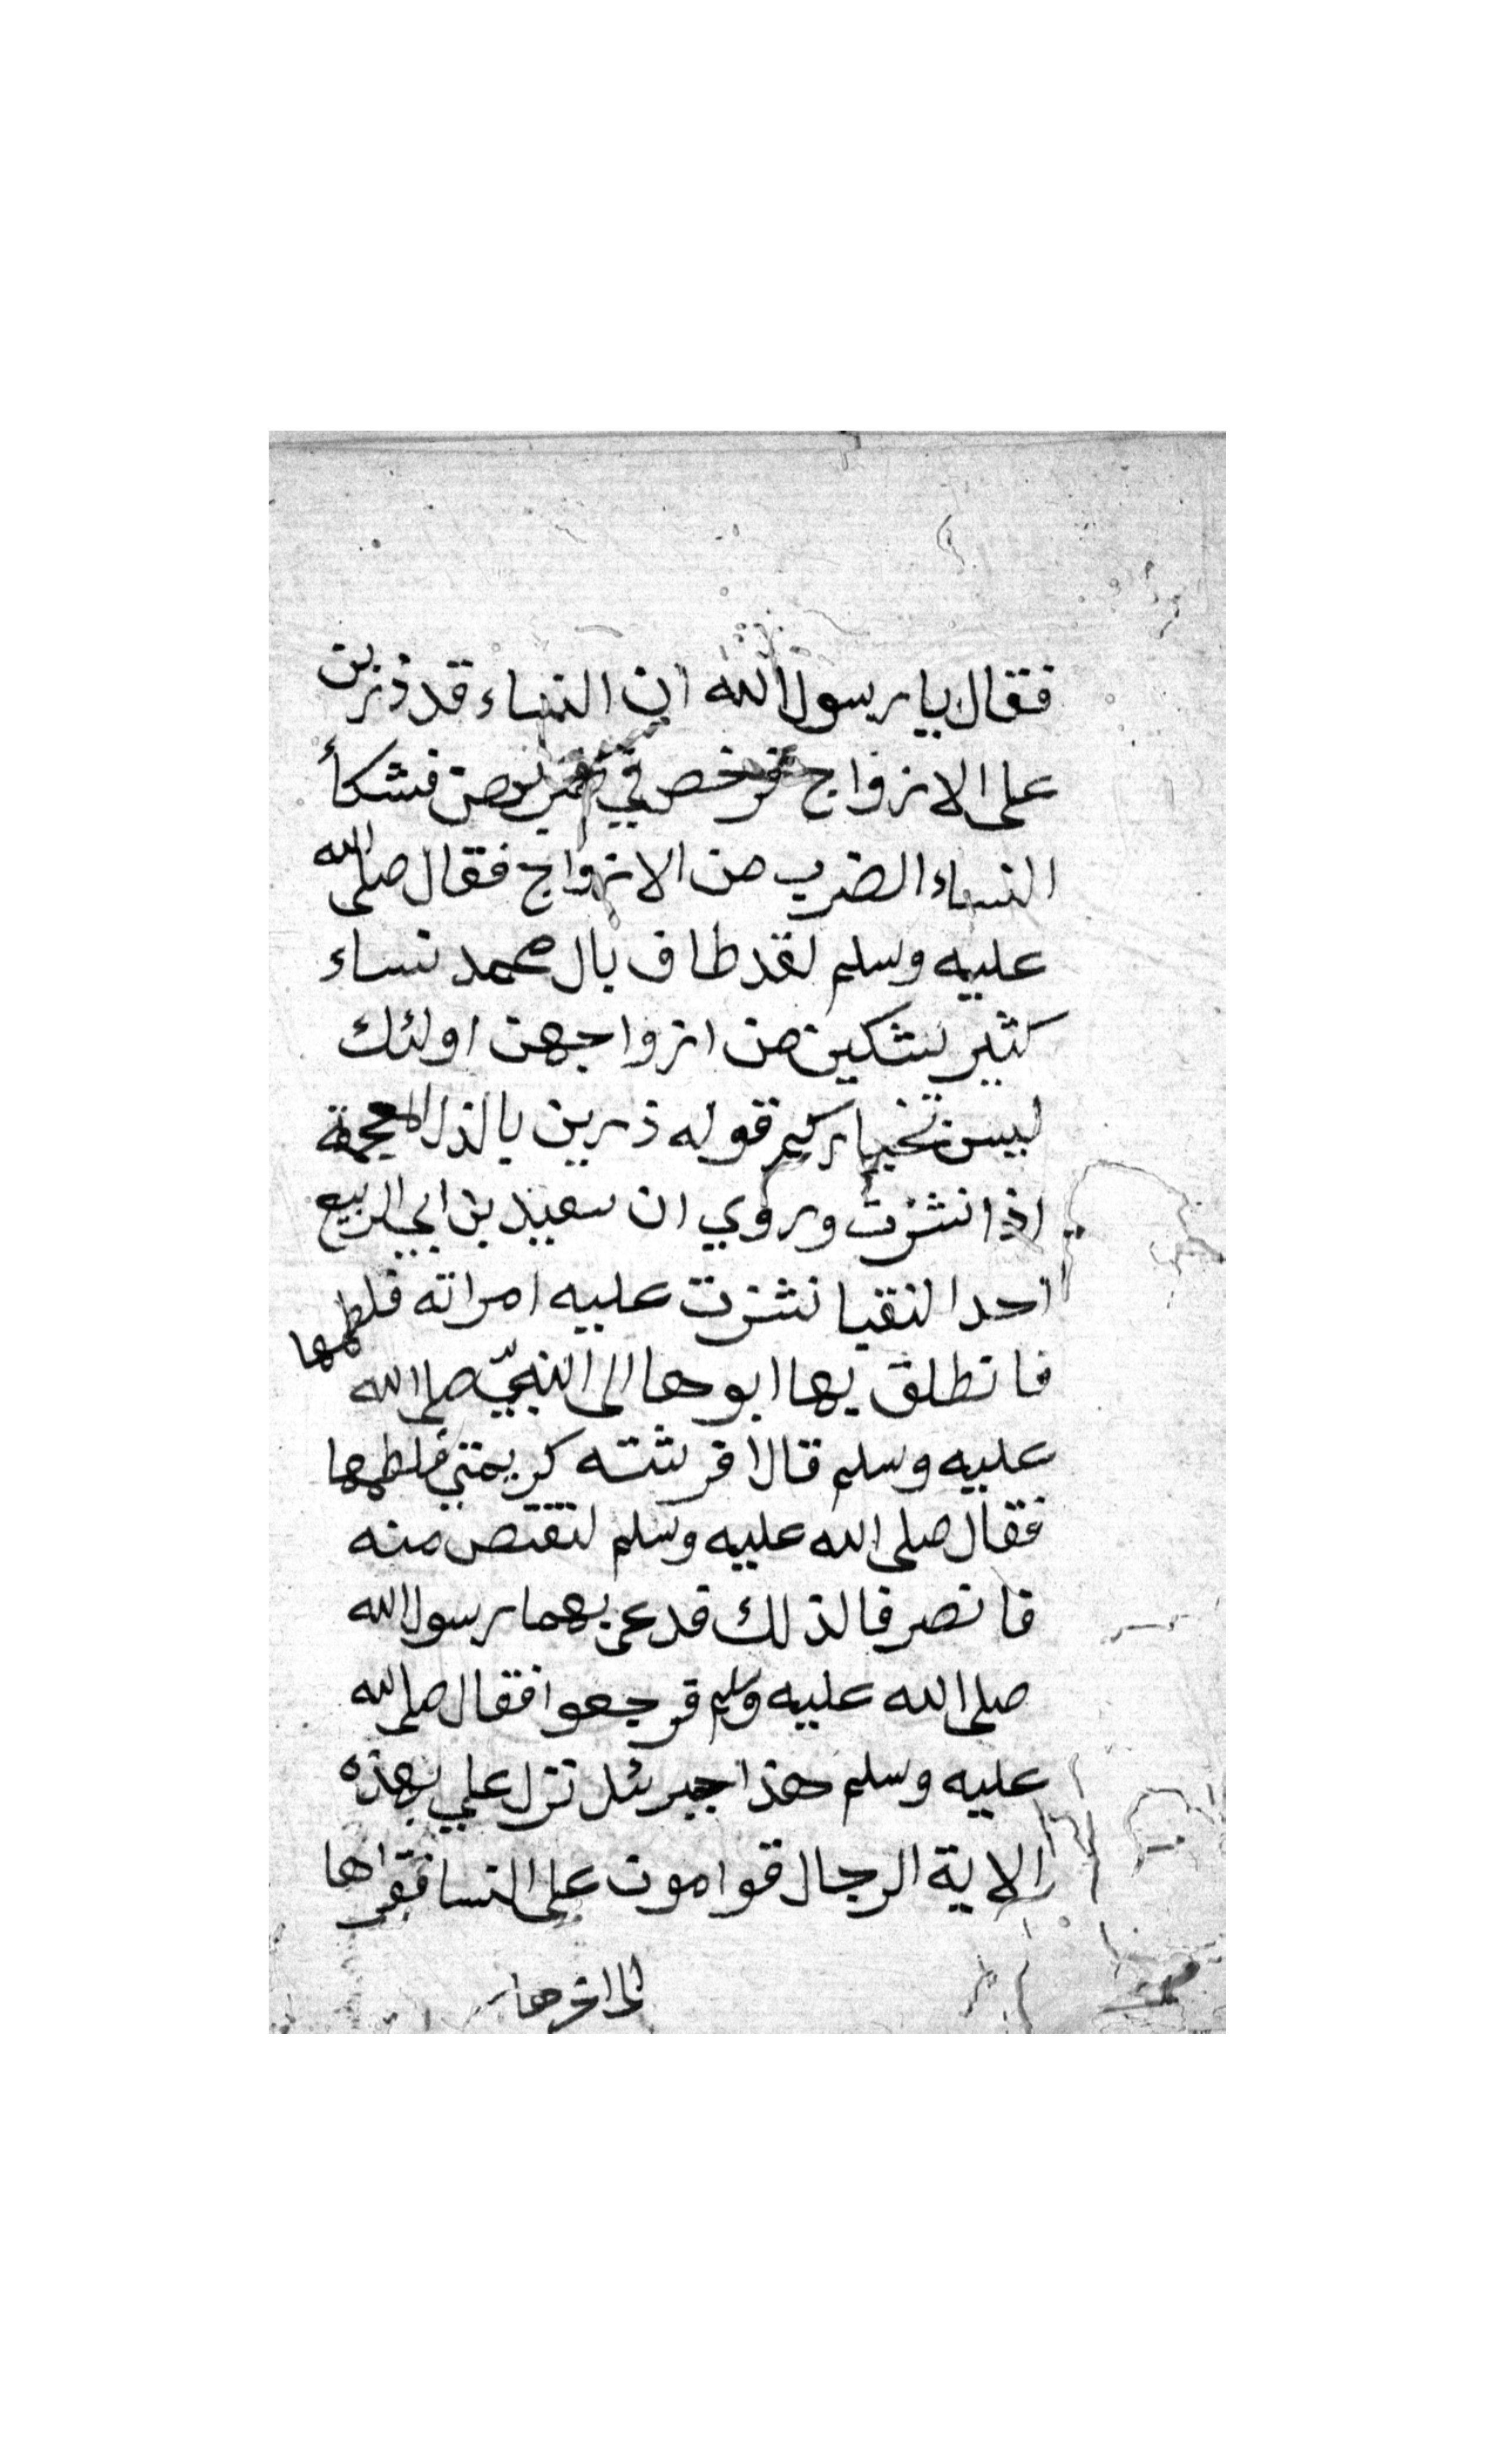 فقال يا رسول الله ان النساء قد ذرين
على الازواج فرخص في ضربهن فشكأ
النساء الضرب من الازواج فقال صلى الله
عليه وسلم لقد طاف بال محمد نساء
كثير يشكين من ازواجهن اولئك
ليس تخياركم قوله ذرين بالذال المعجمة
اذا نشزت وروي ان سعيد بن ابي الربيع
احد النقبا نشزت عليه امراته فلطمها
فانطلق بها ابوها الى النبيّ صلى الله
عليه وسلم قال افرشته كريمتي فلطمها
فقال صلى الله عليه وسلم لتقتص منه
فانصرفا لذلك فدعى بهما رسول الله
صلى الله عليه وسلم فرجعوا فقال صلى الله
عليه وسلم هذا جبرئل نزل علي بهذه
الاية الرجال قوامون على النسا فقراها
الى اخرها